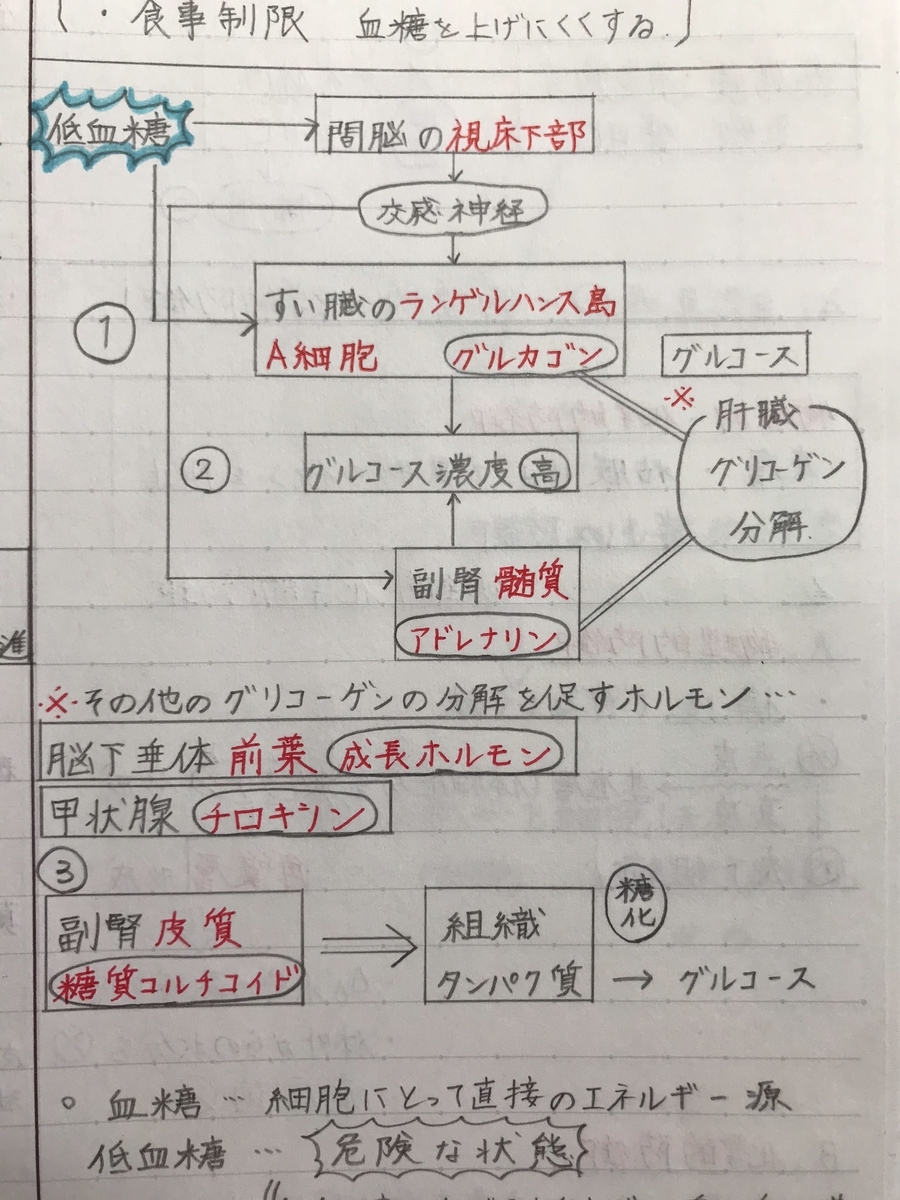 ・食事制限 血糖を上げにくくする
低血糖
間脳の視床下部
交感神経
①
すい臓のランゲルハンス島
A細胞 グルカゴン
グルコース
※ 肝臓
グリコーゲン
分解
②
グルコース濃度 高
副腎 髄質
アドレナリン
進
※その他のグリコーゲンの分解を促すホルモン…
脳下垂体 前葉 成長ホルモン
甲状腺 チロキシン
③
副腎 皮質
糖質コルチコイド
組織
タンパク質 → グルコース
糖化
○ 血糖 … 細胞にとって直接のエネルギー源
低血糖 … 危険な状態